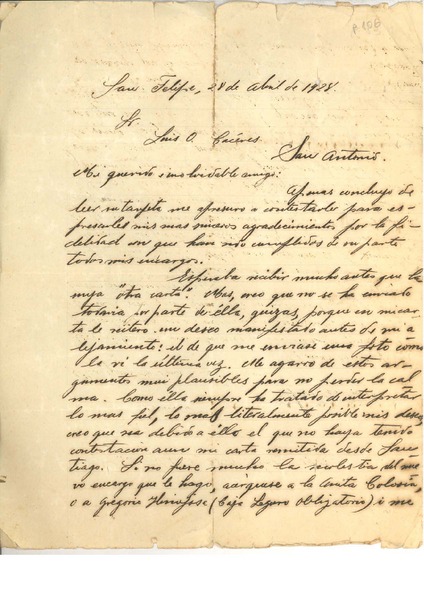 p-106
San Felipe, 28 de Abril de 1928.
Sr.
Luis O. Cáceres.
San Antonio.
Mi querido e inolvidable amigo:
Apenas concluyo de
leer su tarjeta me apresuro a contestarle para ex-
presarles mis mas sinceros agradecimientos por la fi-
delidad con que han sido cumplidos de su parte
todos mis encargos.
Esperaba recibir mucho antes que la
suya "otra carta". Mas, creo que no se ha enviado
todavia por parte de élla, quizas, porque en mi car-
ta le reitero un deseo manifestado antes de mi a
lejamiento: el de que me enviase una foto como
la vi la última vez. Me agarro de estos ar-
gumentos mui plausibles para no perder la cal-
ma. Como élla siempre ha tratado de interpretar
lo mas fiel, lo mas literalmente posible mis deseos,
creo que sea debido a éllo el que no haya tenido
contestacion aun mi carta remitida desde San-
tiago. Si no fuere mucho la molestia del nue
vo encargo que le hago, acérquese a la Anita
o a Gregorio Hinojosa (Caja Seguro Obligatorio) i me